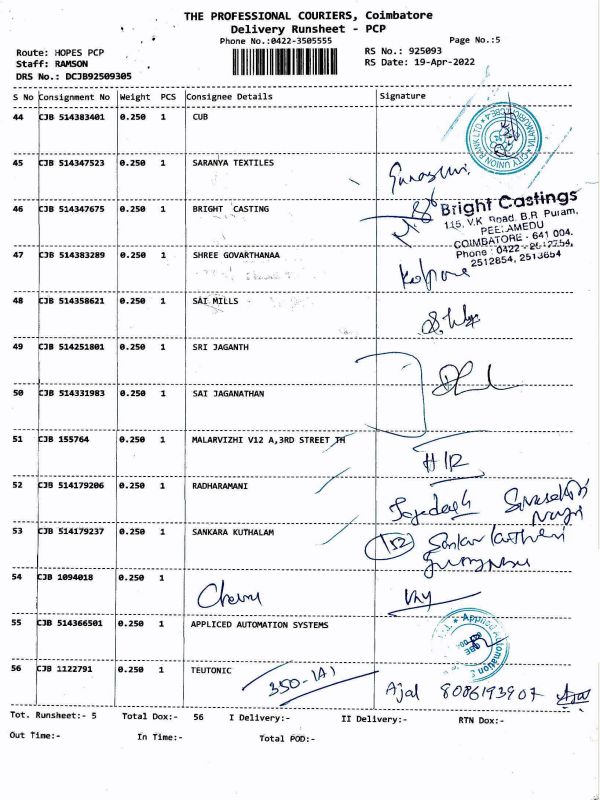 THE PROFESSIONAL COURIERS, Coimbatore
Delivery Runsheet - PCP
Phone No.:0422-3505555
Page No.:5
Route: HOPES PCP
Staff: RAMSON
DRS No.: DCJB92509305
RS No.: 925093
RS Date: 19-Apr-2022
S No Consignment No Weight PCS Consignee Details Signature
44 CJB 514383401 0.250 1 CUB
CITY UNION BANK LTD
45 CJB 514347523 0.250 1 SARANYA TEXTILES
46 CJB 514347675 0.250 1 BRIGHT CASTING
Bright Castings
115, V.K. Road, B.R. Puram,
PEELAMEDU
COIMBATORE - 641 004.
Phone : 0422 -
47 CJB 514383289 0.250 1 SHREE GOVARTHANAA
48 CJB 514358621 0.250 1 SAI MILLS
49 CJB 514251801 0.250 1 SRI JAGANTH
50 CJB 514331983 0.250 1 SAI JAGANATHAN
51 CJB 155764 0.250 1 MALARVIZHI V12 A,3RD STREET TH
H/R
52 CJB 514179206 0.250 1 RADHARAMANI
53 CJB 514179237 0.250 1 SANKARA KUTHALAM
152
54 CJB 1094018 0.250 1
55 CJB 514366501 0.250 1 APPLICED AUTOMATION SYSTEMS
Applied Automation
56 CJB 1122791 0.250 1 TEUTONIC
350-(A)
Ajal 8086193907 Ajal
Tot. Runsheet:- 5 Total Dox:- 56 I Delivery:- II Delivery:- RTN Dox:-
Out Time:- In Time:- Total POD:-